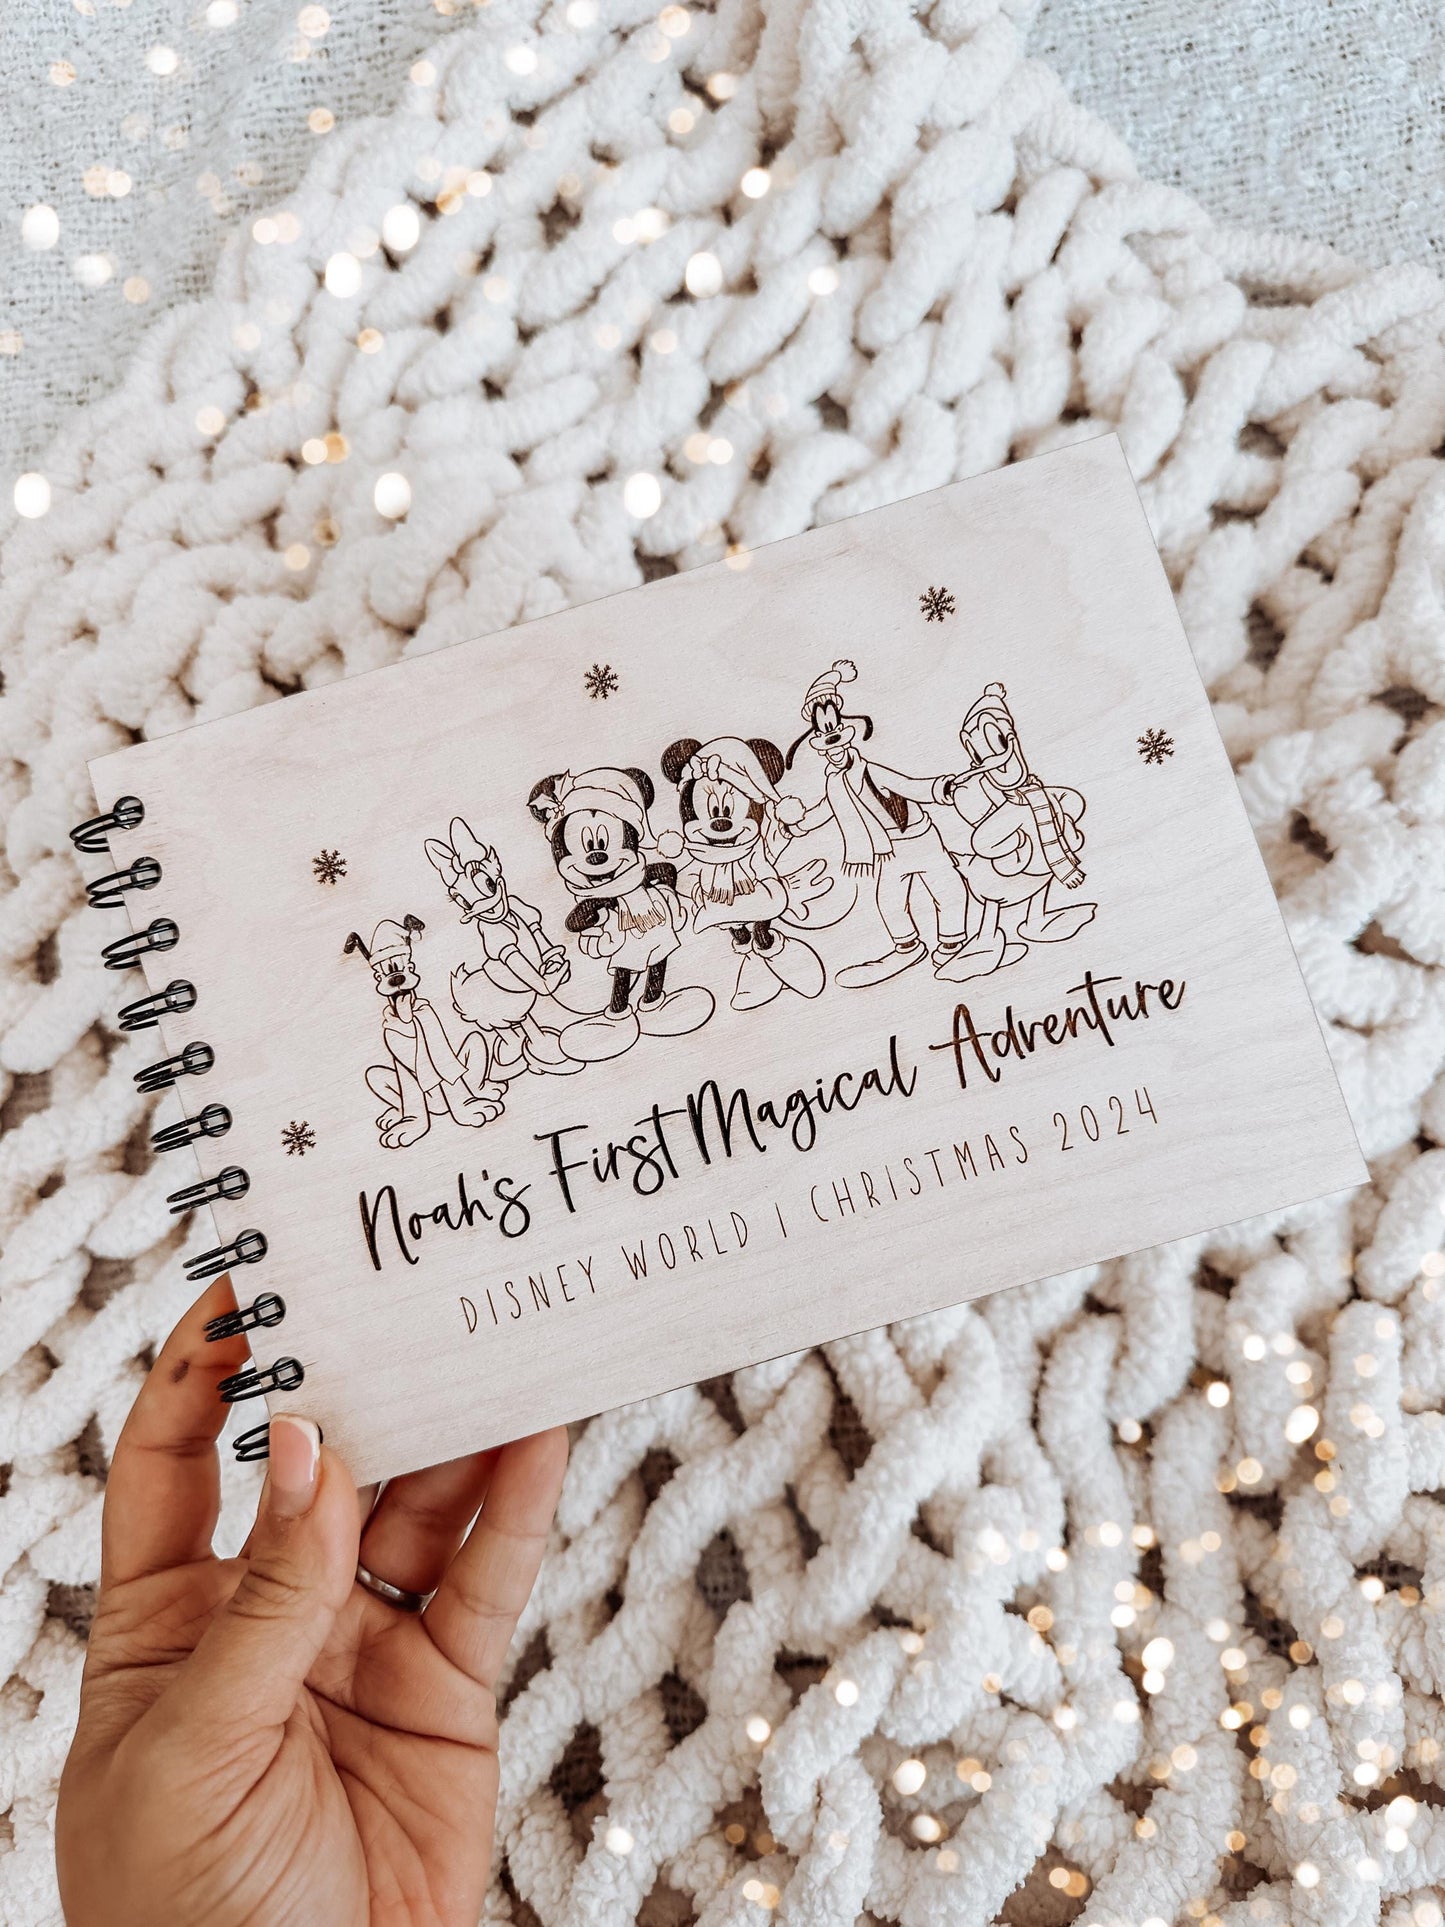 Noah's First Magical Adventure
DISNEY WORLD | CHRISTMAS 2024